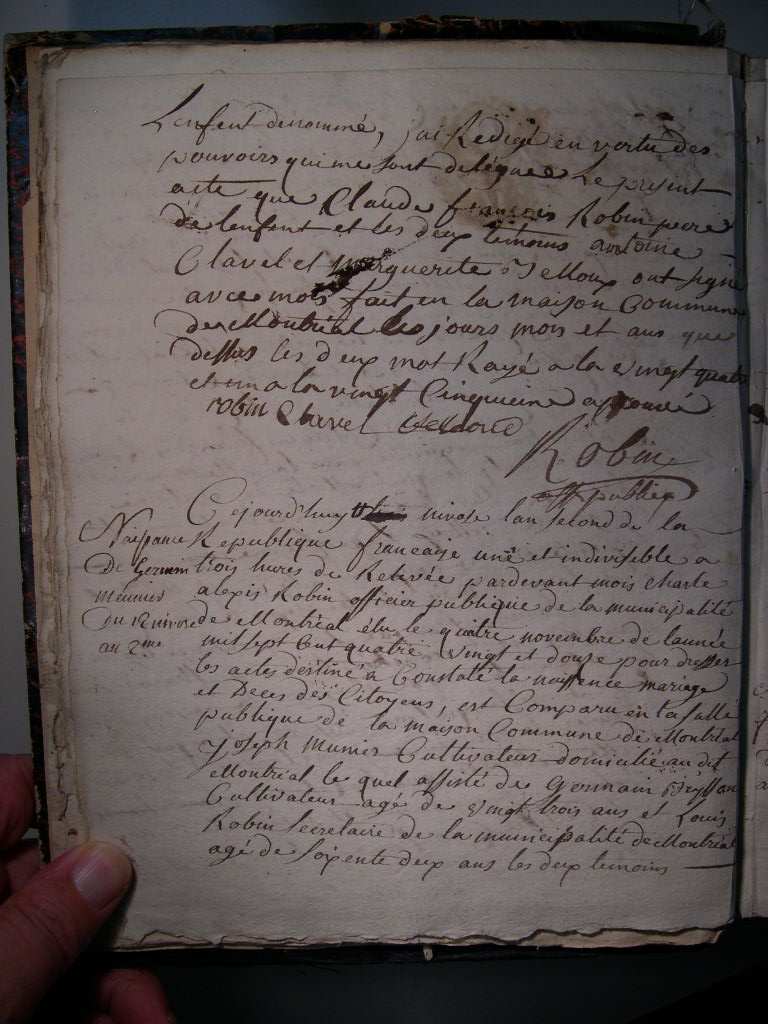 Lenfent denommé, j'ai Redigé en vertu des
pouvoirs qui me sont delegués Le present
acte que Claude françois Robin pere
de lenfent et les deux temoins antoine
Clavel et Marguerite ont signé
avec mois fait en la maison Commune
de Montréal les jours mois et ans que
dessus les deux mot Rayé a la vingt quatre
et un a la vingt Cinquieme aprouvé
robin Clavel
Robin
off publiq
Cejourd'huy nivose lan second de la
Republique francaise une et indivisible a
trois hures de Relevée pardevant mois Charle
alexis Robin officier publique de la municipalité
de Montréal élu le quatre novembre de lannée
mil sept Cent quatre vingt et douse pour dresser
les actes destiné a Constaté la naissence mariage
et Deces des Citoyens, est Comparu en la salle
publique de la maison Commune de Montréal
joseph munier Cultivateur domicilié au dit
Montréal le quel assisté de Germain
Cultivateur agé de vingt trois ans et Louis
Robin secretaire de la municipalité de Montréal
agé de soixente deux ans les deux temoins
Naissance
De Germain
meunier
Du 12 nivose
an 2me